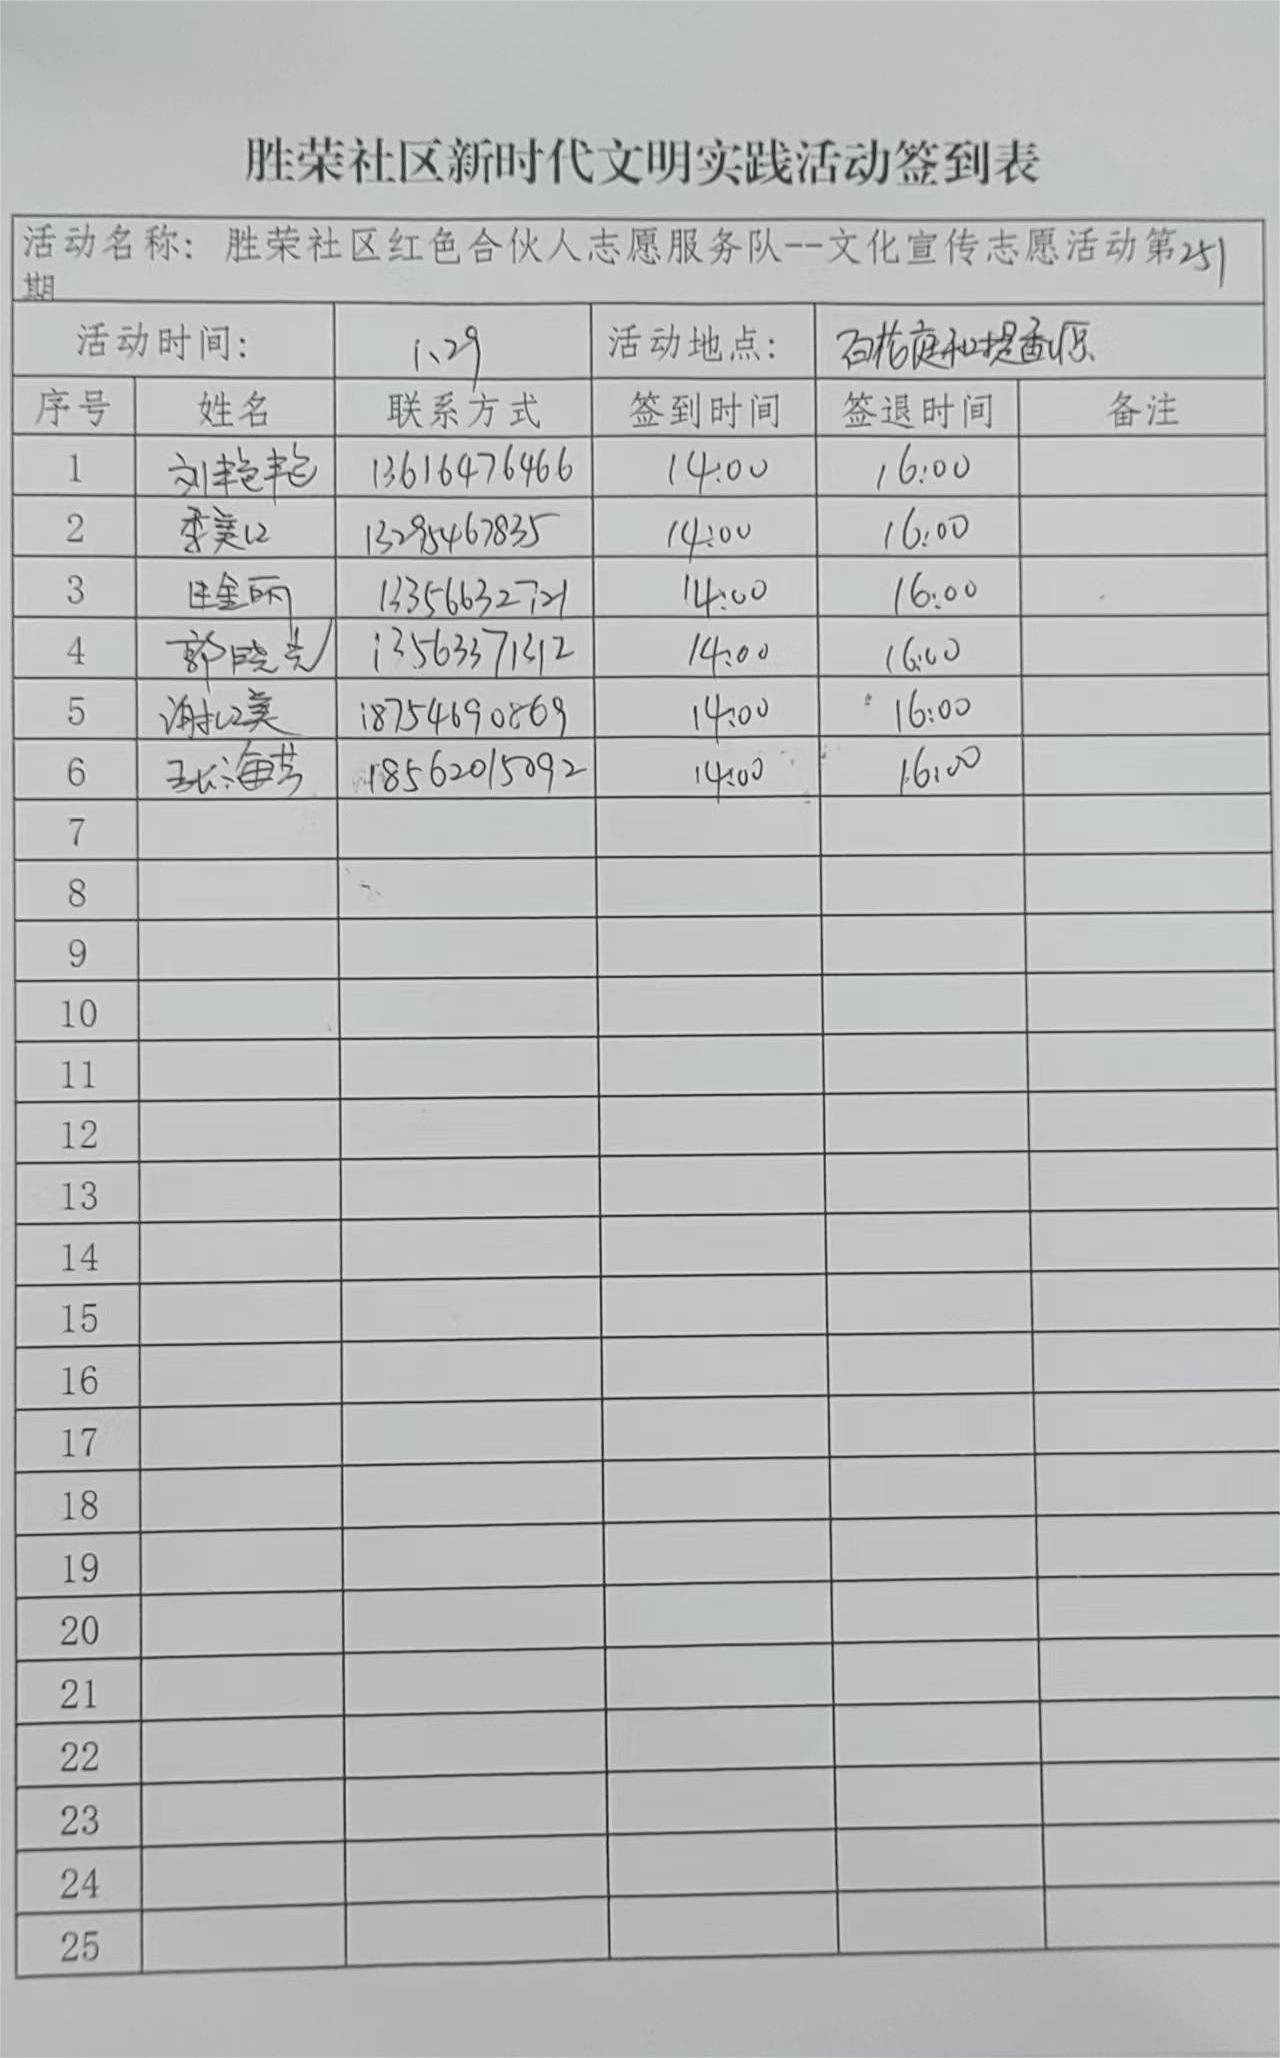 胜荣社区新时代文明实践活动签到表
活动名称：胜荣社区红色合伙人志愿服务队--文化宣传志愿活动第251
期
活动时间： 1.29 活动地点： 百花庭和提香源
序号 姓名 联系方式 签到时间 签退时间 备注
1 刘艳艳 13616476466 14:00 16:00
2 李美江 13295467835 14:00 16:00
3 金丽 13356632721 14:00 16:00
4 郭晓亮 13563371312 14:00 16:00
5 谢红美 18754690869 14:00 16:00
6 海芳 18562015092 14:00 16:00
7
8
9
10
11
12
13
14
15
16
17
18
19
20
21
22
23
24
25